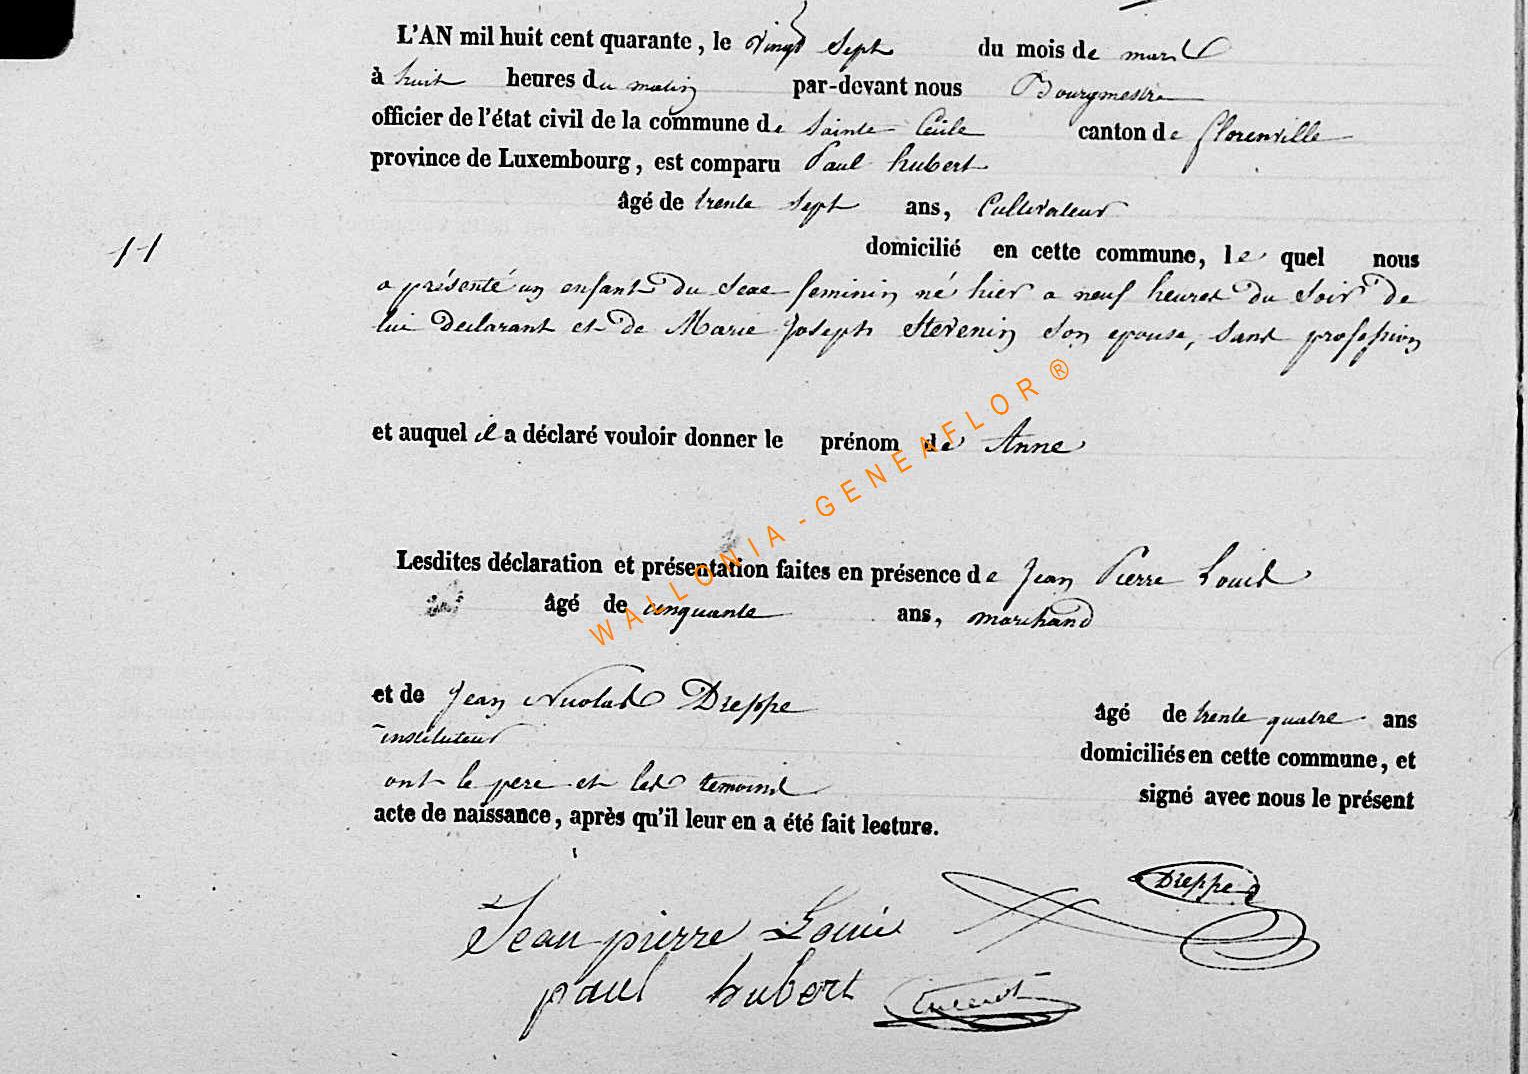 L'AN mil huit cent quarante, le vingt sept du mois de mars
à huit heures du matin par-devant nous Bourgmestre
officier de l'état civil de la commune de Sainte Cécile canton de florenville
province de Luxembourg, est comparu Paul hubert
âgé de trente sept ans, Cultivateur
11 domicilié en cette commune, le quel nous
a présenté un enfant du sexe feminin né hier a neuf heures du soir de
lui declarant et de Marie Joseph Stevenin son epouse, sans profession
et auquel il a déclaré vouloir donner le prénom de Anne
WALLONIA-GENEAFLOR ®
Lesdites déclaration et présentation faites en présence de Jean Pierre Louis
âgé de cinquante ans, marchand
et de Jean Nicolas Dreppe âgé de trente quatre ans
instituteur domiciliés en cette commune, et
ont le pere et les temoins signé avec nous le présent
acte de naissance, après qu'il leur en a été fait lecture.
Dreppe
Jean pierre Louis
paul hubert